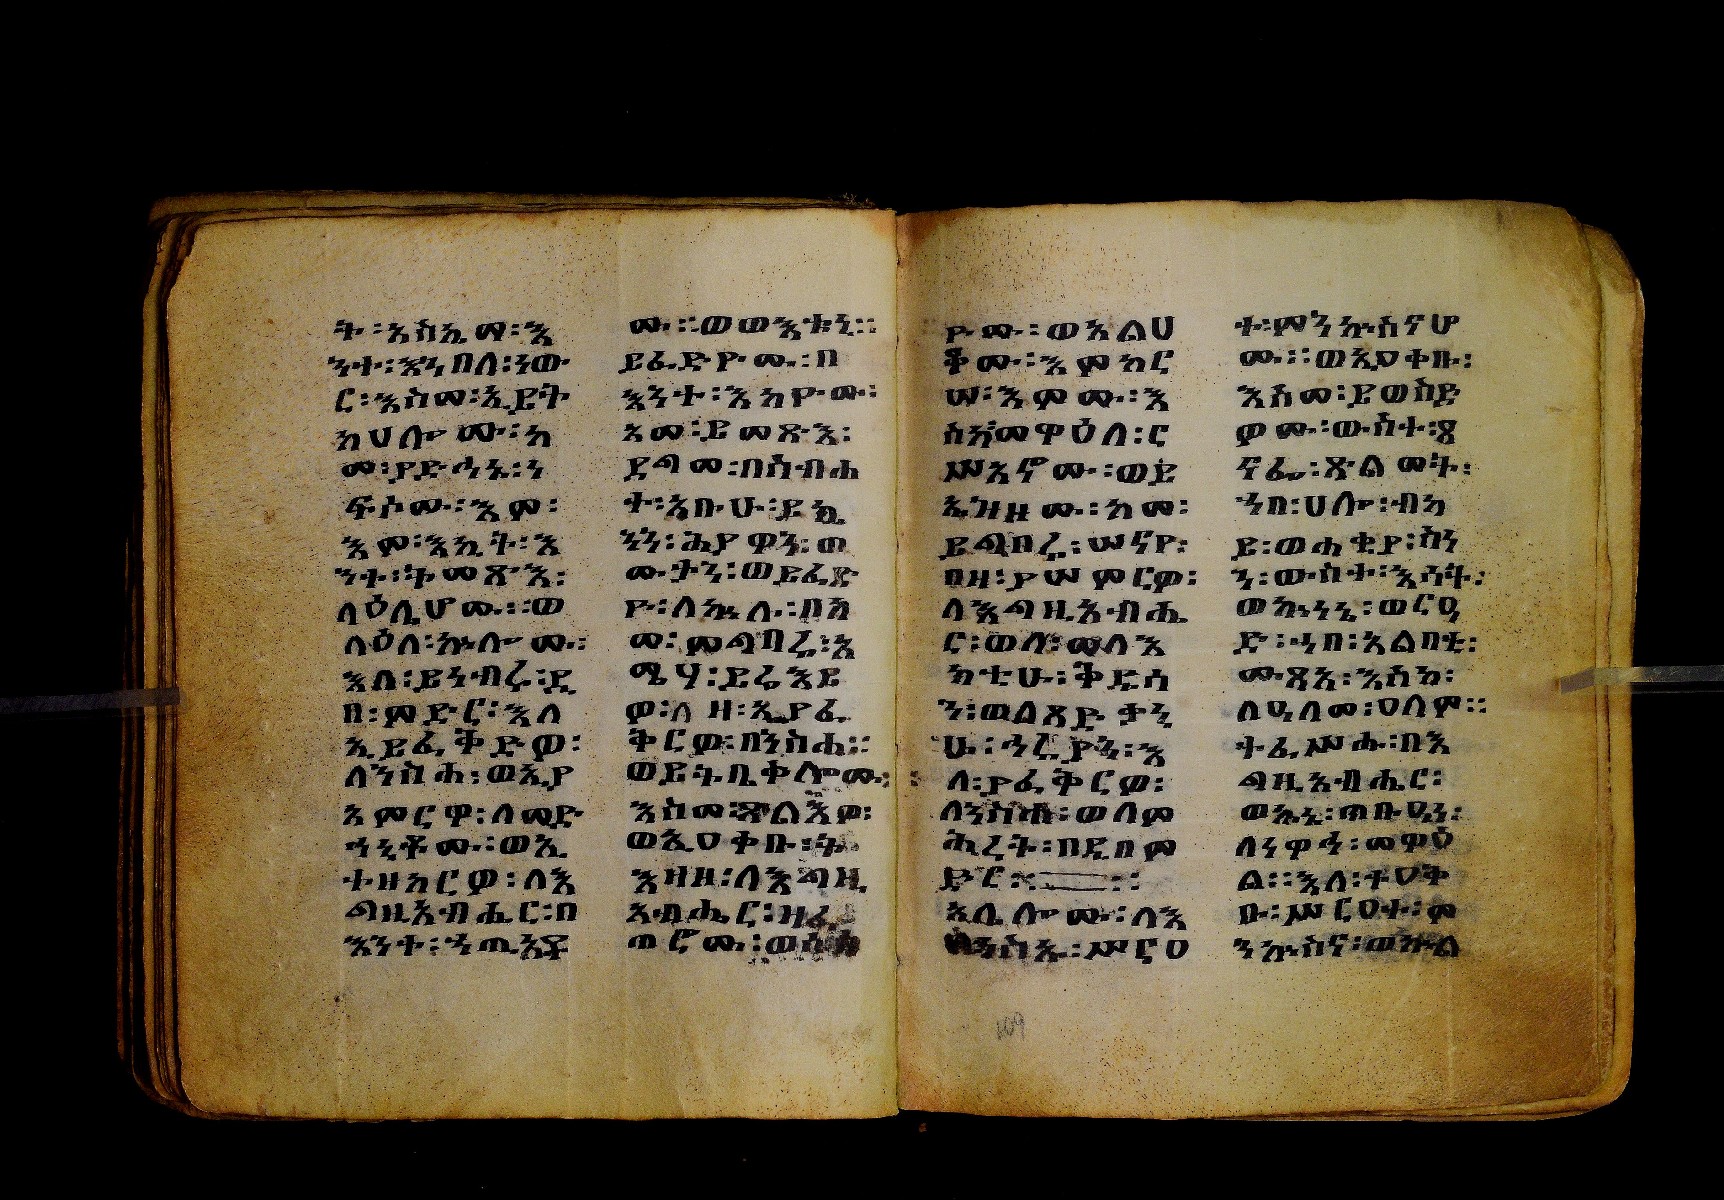 ት፡እስከመ፡እ
ንተ፡እነበለ፡ነው
ር፡እስመ፡ኢይት
ከሀሎሙ፡ከ
መ፡ያድኅኑ፡ነ
ፍሶሙ፡እም፡
እም፡እኪት፡እ
ንተ፡ትመጽእ፡
ላዕሌሆሙ።ወ
ላዕለ፡ኵሎሙ፡
እለ፡ይነብሩ፡ዲ
በ፡ምድር፡እለ
ኢይፈቅድው፡
ለንስሐ፡ወኢያ
እምርዋ፡ለመድ
ኀኒቶሙ፡ወኢ
ተዘከርዎ፡ለእ
ግዚአብሔር፡በ
እንተ፡ኀጢአ
ሙ።ወውእቱኒ፡
ይፈድዮሙ፡በ
እንተ፡እከዮሙ፡
አመ፡ይመጽእ፡
ዳግመ፡በስብሐ
ተ፡አቡሁ፡ይኴ
ንን፡ሕያዋን፡ወ
ሙታን፡ወይፈድ
ዮ፡ለኵሉ፡በከ
መ፡ምግባሩ፡አ
ሜሃ፡ይሬእይ
ዎ፡ለዘ፡ኢያፈ
ቅርዎ፡በንስሐ።
ወይትቤቀሎሙ፡
እስመ፡ጸልእዎ፡
ወኢዐቀቡ፡ት
እዛዘ፡ለእግዚ
አብሔር፡ዘፈ
ጠሮሙ፡ወሰሰ
ዮሙ፡ወአልህ
ቆሙ፡እምከር
ሠ፡እሞሙ፡እ
ስከ፡መዋዕለ፡ር
ሥአኖሙ፡ወይ
ኤዝዞሙ፡ከመ፡
ይግበሩ፡ሠናየ፡
በዘ፡ያሠምርዎ፡
ለእግዚአብሔ
ር፡ወለ፡መላእ
ክቲሁ፡ቅዱሳ
ን፡ወልጸድቃኒ
ሁ፡ኅሩያን፡እ
ለ፡ያፈቅርዎ፡
ለንስሐ፡ወለም
ሕረት፡በዲበ፡ም
ድር፡።
አሌሎሙ፡ለእ
ለ፡ንስእ፡ሥርዐ
ተ፡ምንኵስናሆ
ሙ።ወኢዐቀቡ፡
እስመ፡ይወስድ
ዎሙ፡ውስተ፡ጸ
ናፌ፡ጽልመት፡
ኀበ፡ሀሎ፡ብካ
ይ፡ወሐቂያ፡ስነ
ን፡ውስተ፡እሳት፡
ወኵነኔ፡ወርዒ
ድ፡ኀበ፡አልቦቱ፡
ሙጻእ፡እስከ፡
ለዓለመ፡ዐለም።
ተፈሥሑ፡በእ
ግዚአብሔር፡
ወእኒ፡ጥቡዓን፡
ለነዋኅ፡መዋዕ
ል።እለ፡ተዐቅ
ቡ፡ሥርዐተ፡ም
ንኵስና፡ወኵል